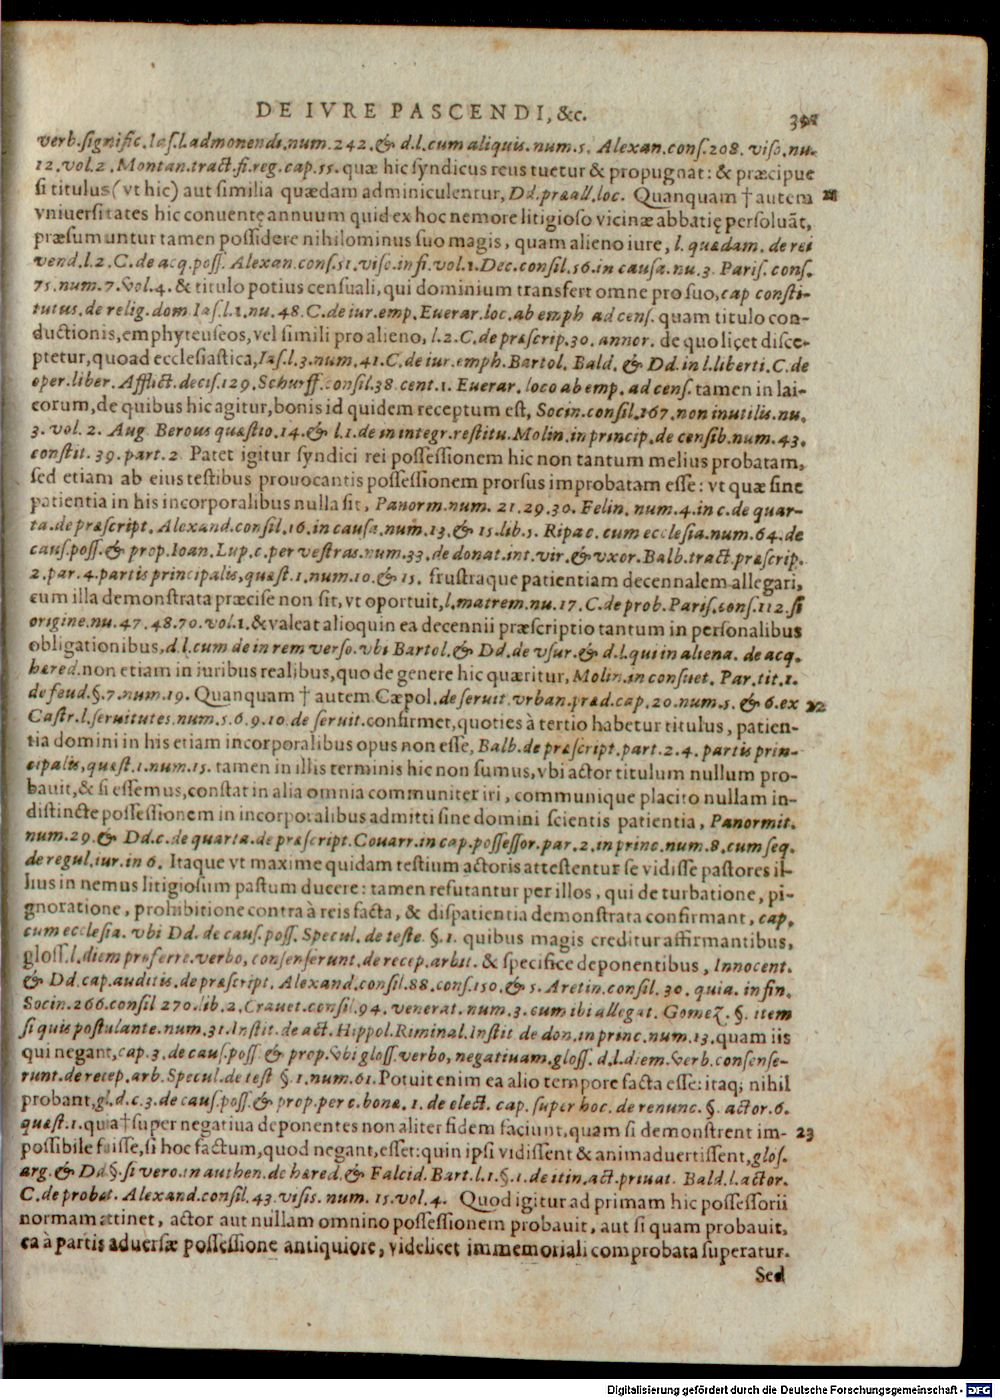 DE IVRE PASCENDI, &c.
verb. signific. Ias. l. admonendi. num. 242. & d. l. cum aliquis. num. 5. Alexan. cons. 208. viso, nu.
12. vol. 2. Montan. tract. fi. reg. cap. 55. quæ hic syndicus reus tuetur & propugnat: & præcipue
si titulus (vt hic) aut similia quædam adminiculentur, Dd. præall. loc. Quanquam † autem 21
vniuersitates hic conuentę annuum quid ex hoc nemore litigioso vicinæ abbatię persoluāt,
præsumuntur tamen possidere nihilominus suo magis, quam alieno iure, l. quædam. de rei
vend. l. 2. C. de acq. poss. Alexan. cons. 51. viso. in fi. vol. 1. Dec. consil. 56. in causa. nu. 3. Paris. cons.
75. num. 7. vol. 4. & titulo potius censuali, qui dominium transfert omne pro suo, cap consti-
tutus. de relig. dom Ias. l. 1. nu. 48. C. de iur. emp. Euerar. loc. ab emph ad cens. quam titulo con-
ductionis, emphyteuseos, vel simili pro alieno, l. 2. C. de præscrip. 30. annor. de quo liçet disce-
ptetur, quoad ecclesiastica, Ias. l. 3. num. 41. C. de iur. emph. Bartol. Bald. & Dd. in l. liberti. C. de
oper. liber. Afflict. decis. 129. Schurff. consil. 38. cent. 1. Euerar. loco ab emp. ad cens. tamen in lai-
corum, de quibus hic agitur, bonis id quidem receptum est, Socin. consil. 167. non inutilis. nu.
3. vol. 2. Aug. Berous quæstio. 14. & l. 1. de in integr. restitu. Molin. in princip. de censib. num. 43.
constit. 39. part. 2 Patet igitur syndici rei possessionem hic non tantum melius probatam,
sed etiam ab eius testibus prouocantis possessionem prorsus improbatam esse: vt quæ sine
patientia in his incorporalibus nulla sit, Panorm. num. 21. 29. 30. Felin. num. 4. in c. de quar-
ta. de præscript. Alexand. consil. 16. in causa. num. 13. & 15. lib. 5. Ripa c. cum ecclesia. num. 64. de
caus. poss. & prop. Ioan. Lup. c. per vestras. num. 33. de donat. int. vir. & vxor. Balb. tract. præscrip.
2. par. 4. partis principalis, quæst. 1. num. 10. & 15. frustraque patientiam decennalem allegari,
cum illa demonstrata præcise non sit, vt oportuit, l. matrem. nu. 17. C. de prob. Paris. cons. 112. si
origine. nu. 47. 48. 70. vol. 1. & valeat alioquin ea decennii præscriptio tantum in personalibus
obligationibus, d. l. cum de in rem verso. vbi Bartol. & Dd. de vsur. & d. l. qui in aliena. de acq.
hæred. non etiam in iuribus realibus, quo de genere hic quæritur, Molin. in consuet. Par. tit. 1.
de feud. §. 7. num. 19. Quanquam † autem Cæpol. de seruit. vrban. præd. cap. 20. num. 5. & 6. ex 22
Castr. l. seruitutes. num. 5. 6. 9. 10. de seruit. confirmet, quoties à tertio habetur titulus, patien-
tia domini in his etiam incorporalibus opus non esse, Balb. de præscript. part. 2. 4. partis prin-
cipalis, quæst. 1. num. 15. tamen in illis terminis hic non sumus, vbi actor titulum nullum pro-
bauit, & si essemus, constat in alia omnia communiter iri, communique placito nullam in-
distincte possessionem in incorporalibus admitti sine domini scientis patientia, Panormit.
num. 29. & Dd. c. de quarta. de præscript. Couarr. in cap. possessor. par. 2. in princ. num. 8. cum seq.
de regul. iur. in 6. Itaque vt maxime quidam testium actoris attestentur se vidisse pastores il-
lius in nemus litigiosum pastum ducere: tamen refutantur per illos, qui de turbatione, pi-
gnoratione, prohibitione contra à reis facta, & dispatientia demonstrata confirmant, cap.
cum ecclesia. vbi Dd. de caus. poss. Specul. de teste. §. 1. quibus magis creditur affirmantibus,
gloss. l. diem proferre. verbo, consenserunt. de recep. arbit. & specifice deponentibus, Innocent.
& Dd cap. auditis. de præscript. Alexand. consil. 88. cons. 150. & 5. Aretin. consil. 30. quia. in fin.
Socin. 266. consil 270. lib. 2. Crauet. consil. 94. venerat. num. 3. cum ibi allegat. Gomez. §. item
si quis postulante. num. 31. Instit. de act. Hippol. Riminal. Instit de don. in princ. num. 13. quam iis
qui negant, cap. 3. de caus. poss. & prop. vbi gloss. verbo, negatiuam. gloss. d. l. diem. verb. consense-
runt. de recep. arb. Specul. de test §. 1. num. 61. Potuit enim ea alio tempore facta esse: itaq; nihil
probant, gl. d. c. 3. de caus. poss. & prop. per c. bonæ. 1. de elect. cap. super hoc. de renunc. §. actor. 6.
quæst. 1. quia † super negatiua deponentes non aliter fidem faciunt, quam si demonstrent im- 23
possibile fuisse, si hoc factum, quod negant, esset: quin ipsi vidissent & animaduertissent, glos.
arg. & Dd §. si vero. in authen. de hæred. & Falcid. Bart. l. 1. §. 1. de itin. act. priuat. Bald. l. actor.
C. de probat. Alexand. consil. 43. visis. num. 15. vol. 4. Quod igitur ad primam hic possessorii
normam attinet, actor aut nullam omnino possessionem probauit, aut si quam probauit,
ea à partis aduersæ possessione antiquiore, videlicet immemoriali comprobata superatur.
Sed
Digitalisierung gefördert durch die Deutsche Forschungsgemeinschaft - DFG